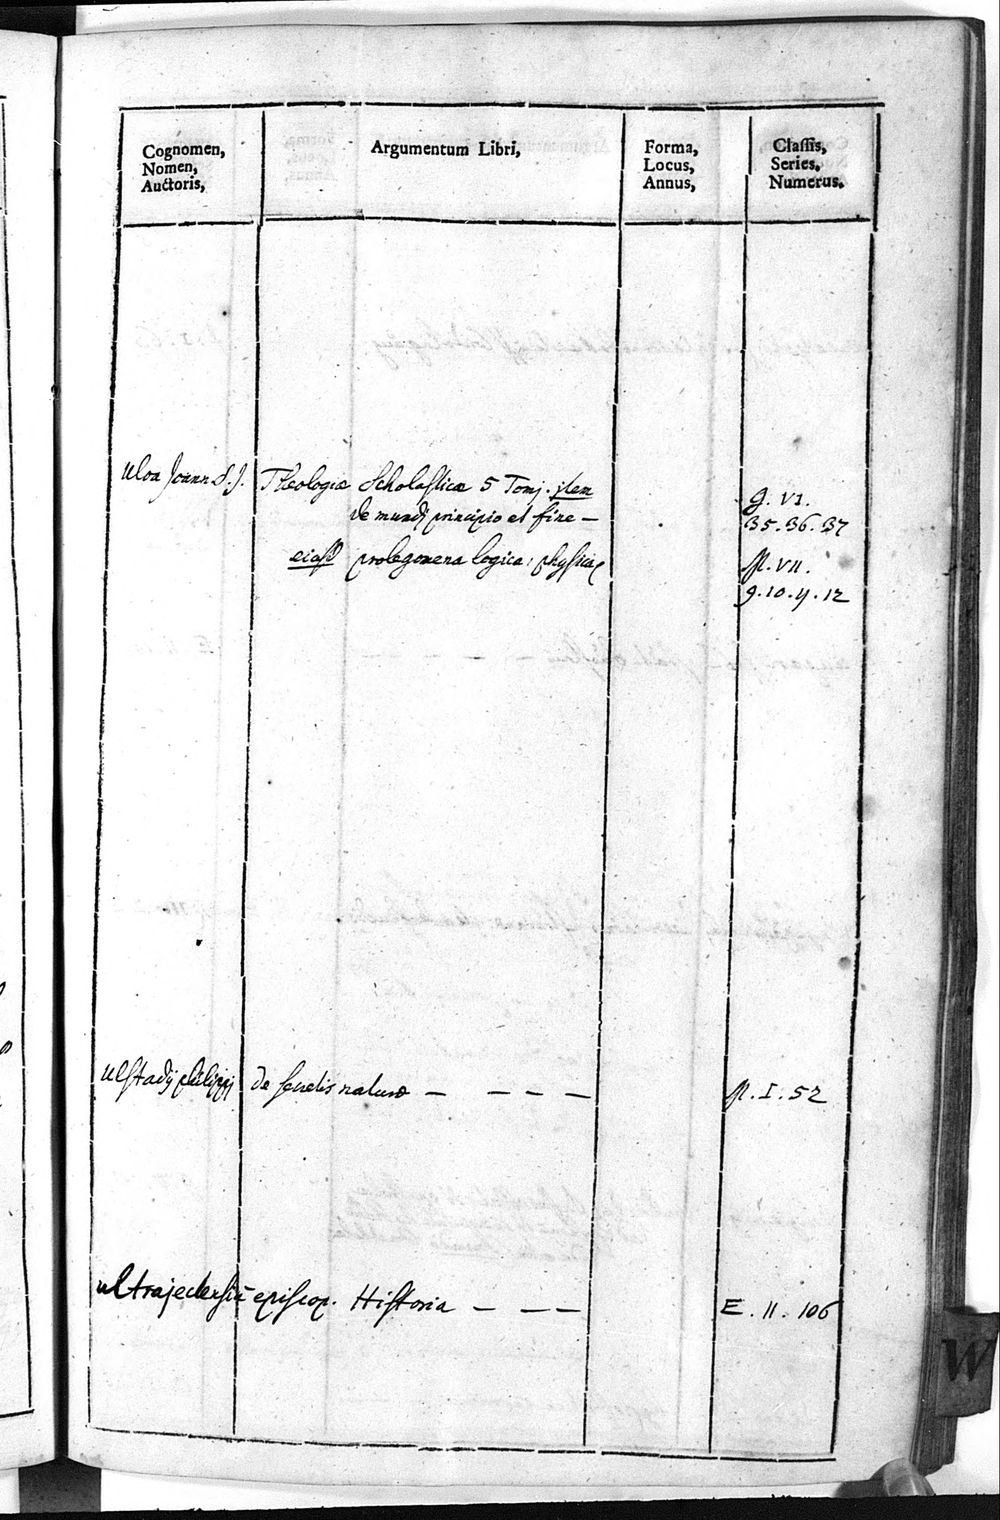 Cognomen,
Nomen,
Auctoris,
Argumentum Libri,
Forma,
Locus,
Annus,
Classis,
Series,
Numerus.
Uloa Joann S.J. Theologiæ Scholasticæ 5 Tomj. jtem
de mundj principio et fine –
g. VI.
35. 36. 37
eiusd prolegomena logica, physica
VII.
9. 10. 11. 12
Ulstadij philippj de secretis naturæ – – – –
I. 52
Ultrajectensiu episcop. Historia – – –
E. II. 106
W